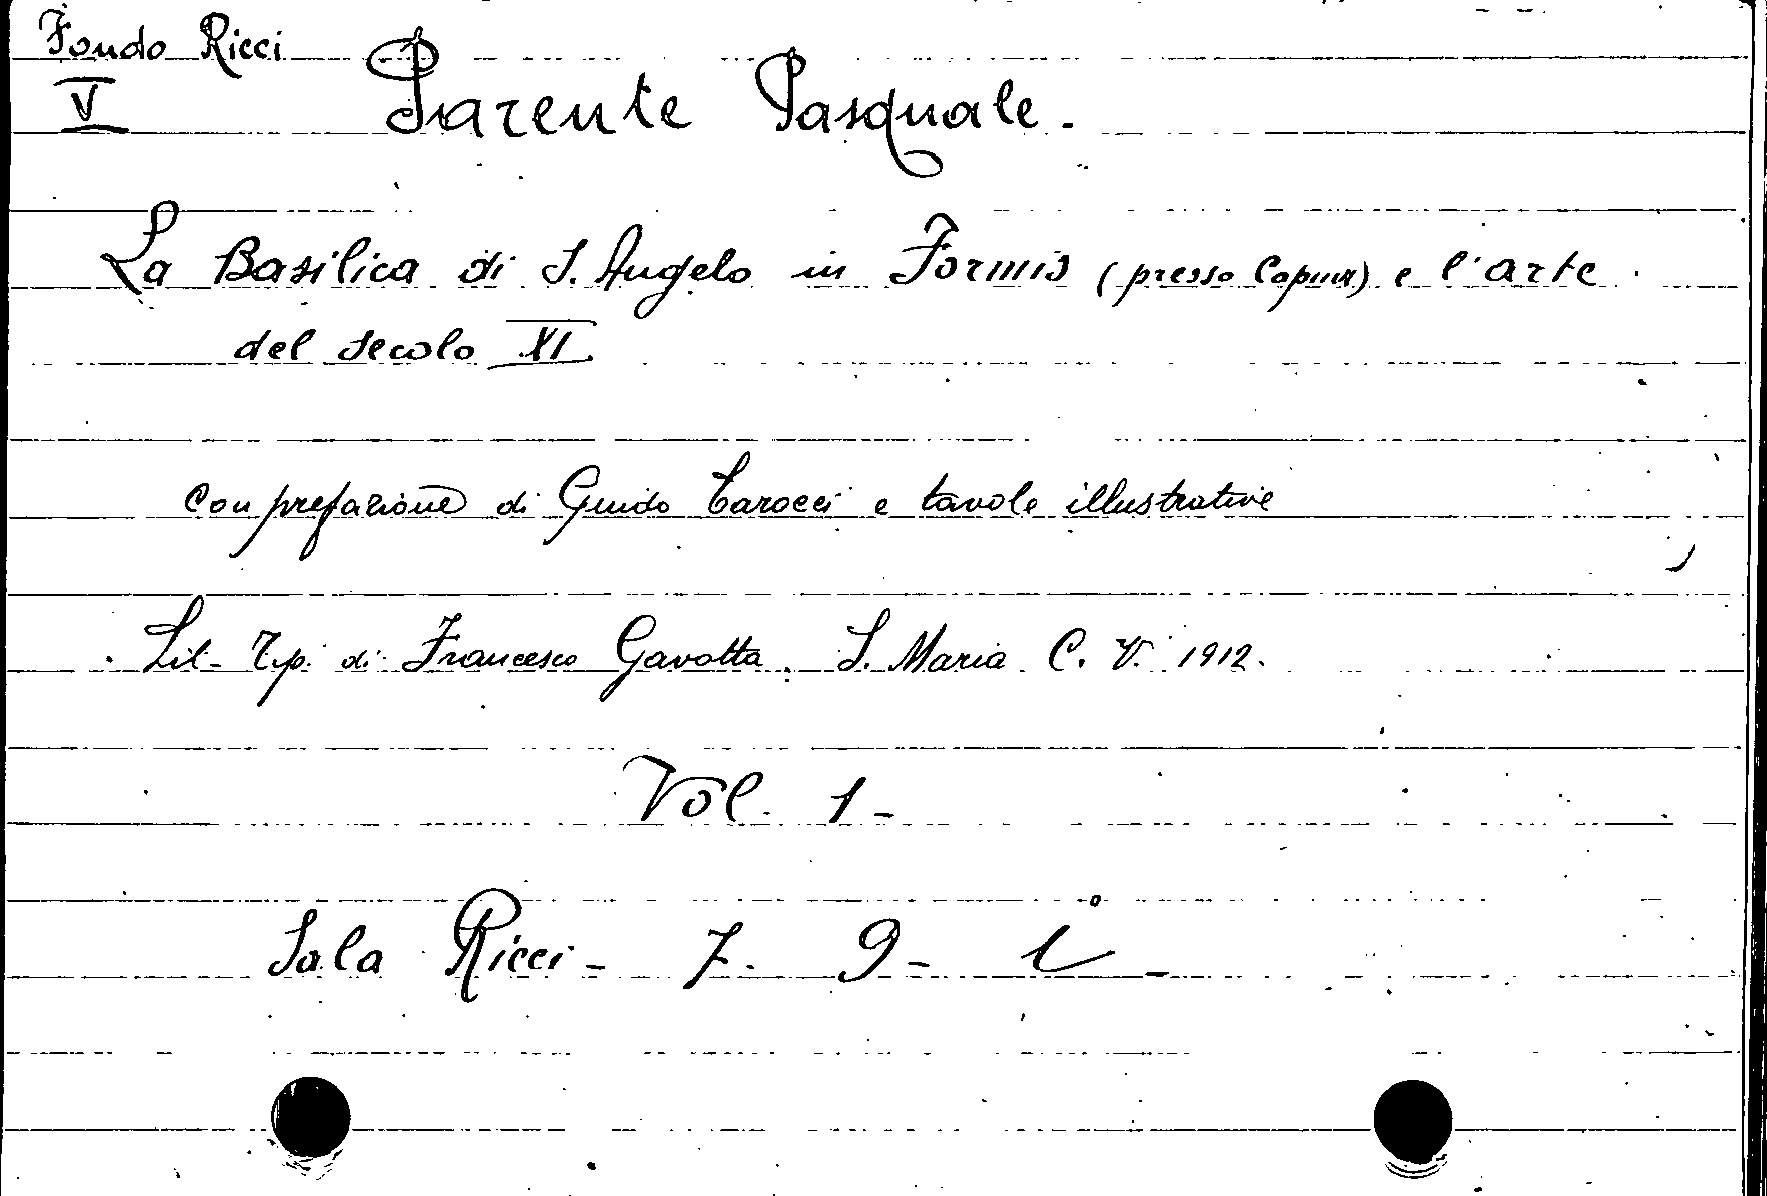 Fondo Ricci
V Parente Pasquale.
La Basilica di S. Angelo in Formis (presso Capua) e l'arte
del secolo XI
con prefazione di Guido Carocci e tavole illustrative
Lit- Tip. di Francesco Gavotta. S. Maria C. V. 1912.
Vol. 1-
Sala Ricci - 7. 9 -